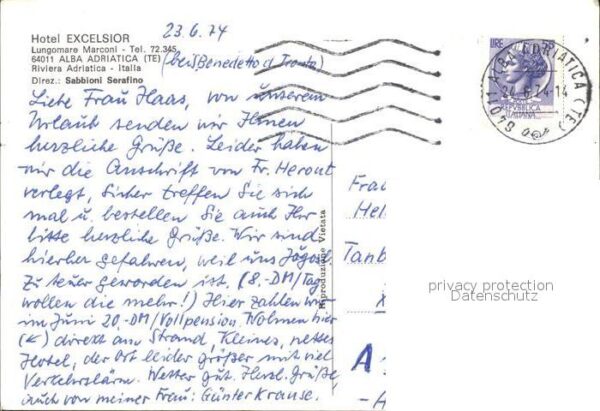 Hotel EXCELSIOR
Lungomare Marconi - Tel. 72.345
64011 ALBA ADRIATICA (TE)
Riviera Adriatica - Italia
Direz.: Sabbioni Serafino
23.6.74
(bei S. Benedetto d. Tronto)
Liebe Frau Haas, von unserem
Urlaub senden wir Ihnen
herzliche Grüße. Leider haben
wir die Anschrift von Fr. Herout
verlegt, sicher treffen Sie sich
mal u. bestellen Sie auch Ihr
bitte herzliche Grüße. Wir sind
hierher gefahren, weil uns Jugosl.
zu teuer geworden ist. (8.-DM/Tag
wollen die mehr!) Hier zahlen wir
im Juni 20.-DM/Vollpension. Wohnen hier
(←) direkt am Strand, Kleines, nettes
Hotel, der Ort leider größer mit viel
Verkehrslärm. Wetter gut. Herzl. Grüße
auch von meiner Frau: Günter Krause.
Riproduzione Vietata
LIRE
REPUBBLICA
ITALIANA
64011 ALBA ADRIATICA (TE)
24.6.74-14
Frau
Hel
Tanb
A
-A
privacy protection
Datenschutz